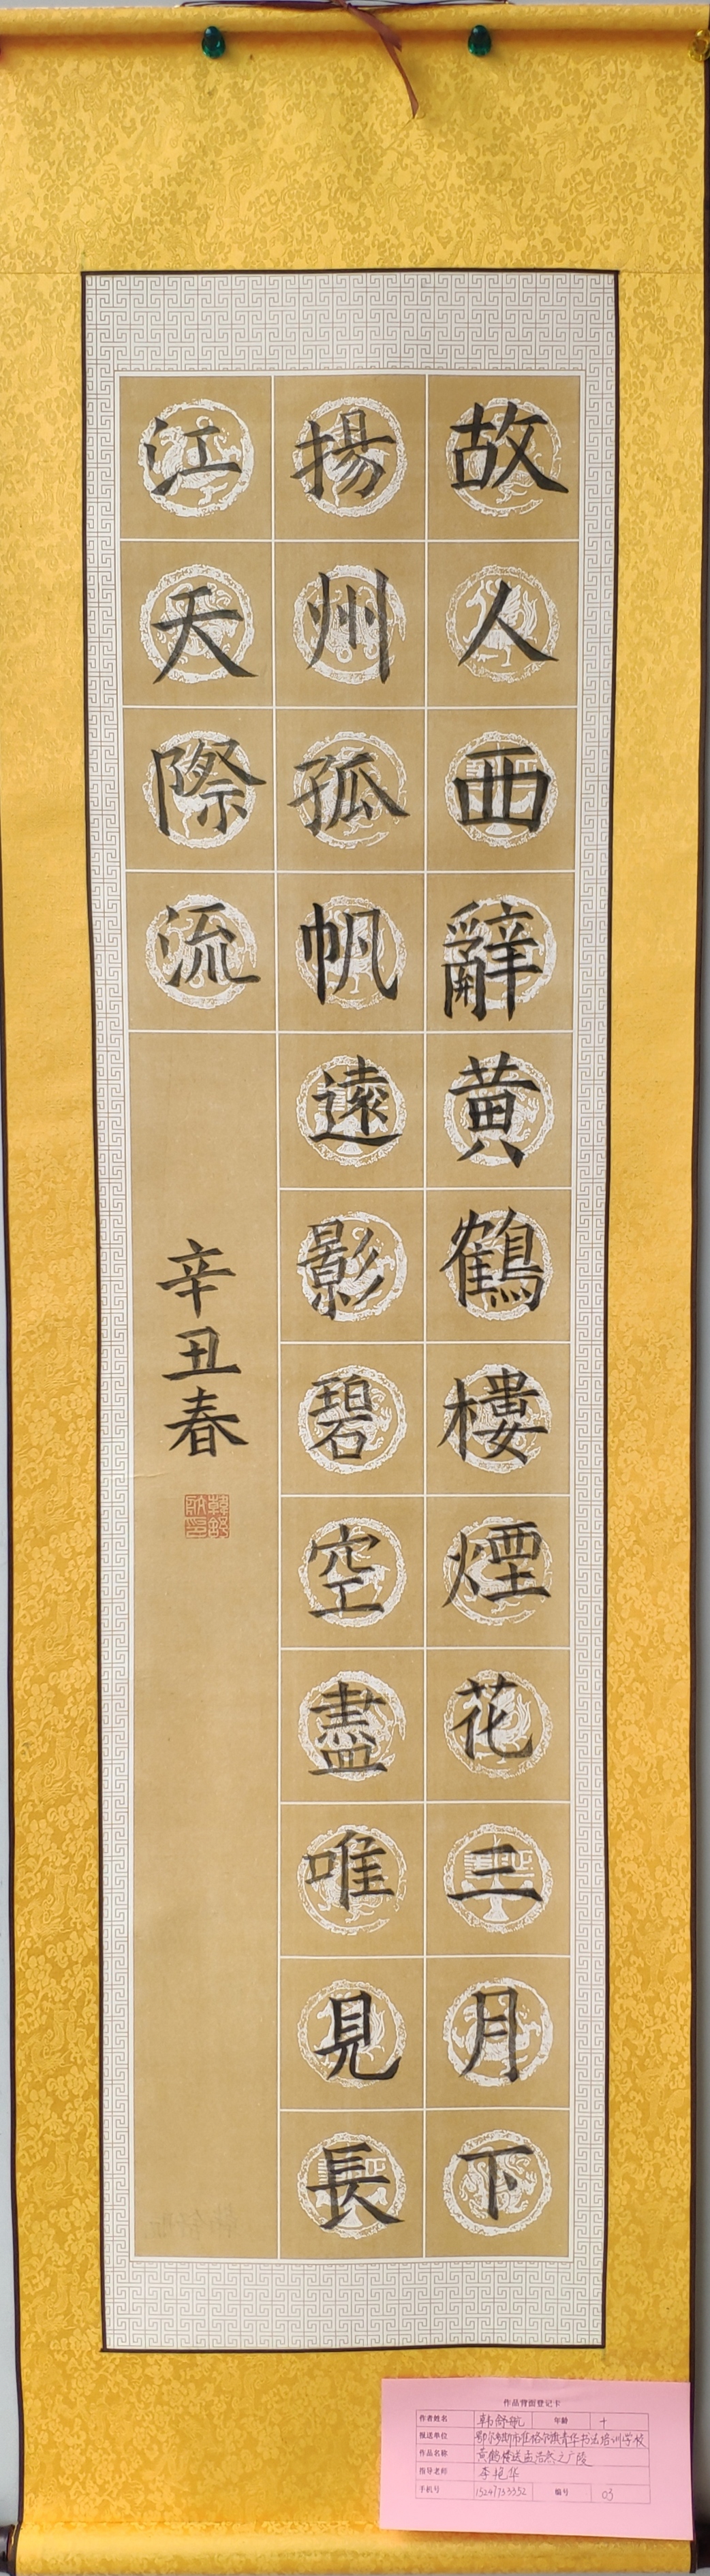 故人西辭黃鶴樓煙花三月下
揚州孤帆遠影碧空盡唯見長
江天際流
辛丑春
作品背面登记卡
作者姓名 韩舒航 年龄 十
报送单位 鄂尔多斯市准格尔旗青华书法培训学校
作品名称 黄鹤楼送孟浩然之广陵
指导老师 李艳华
手机号 编号 03